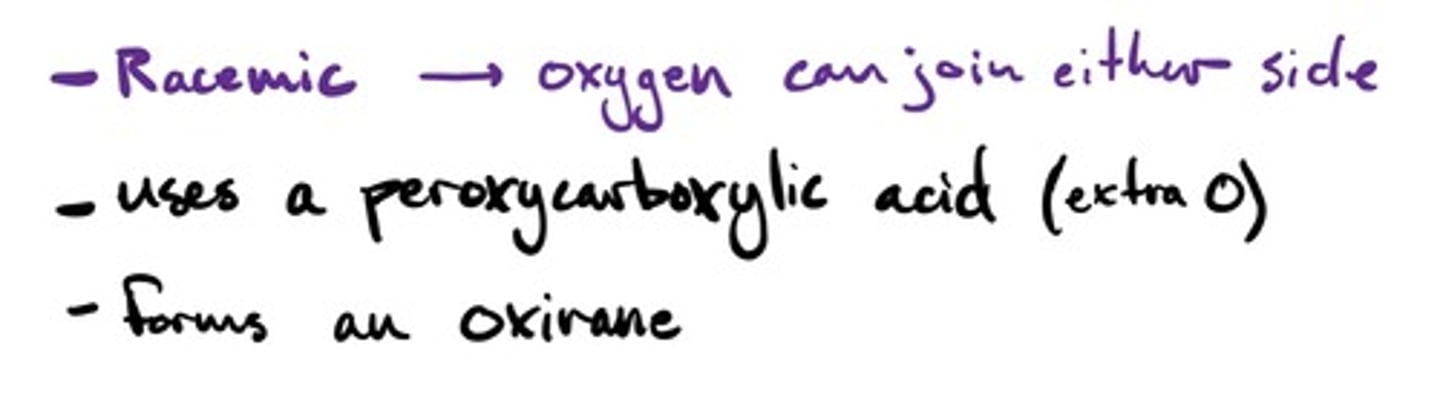 - Racemic → oxygen can join either side
- uses a peroxycarboxylic acid (extra O)
- forms an oxirane